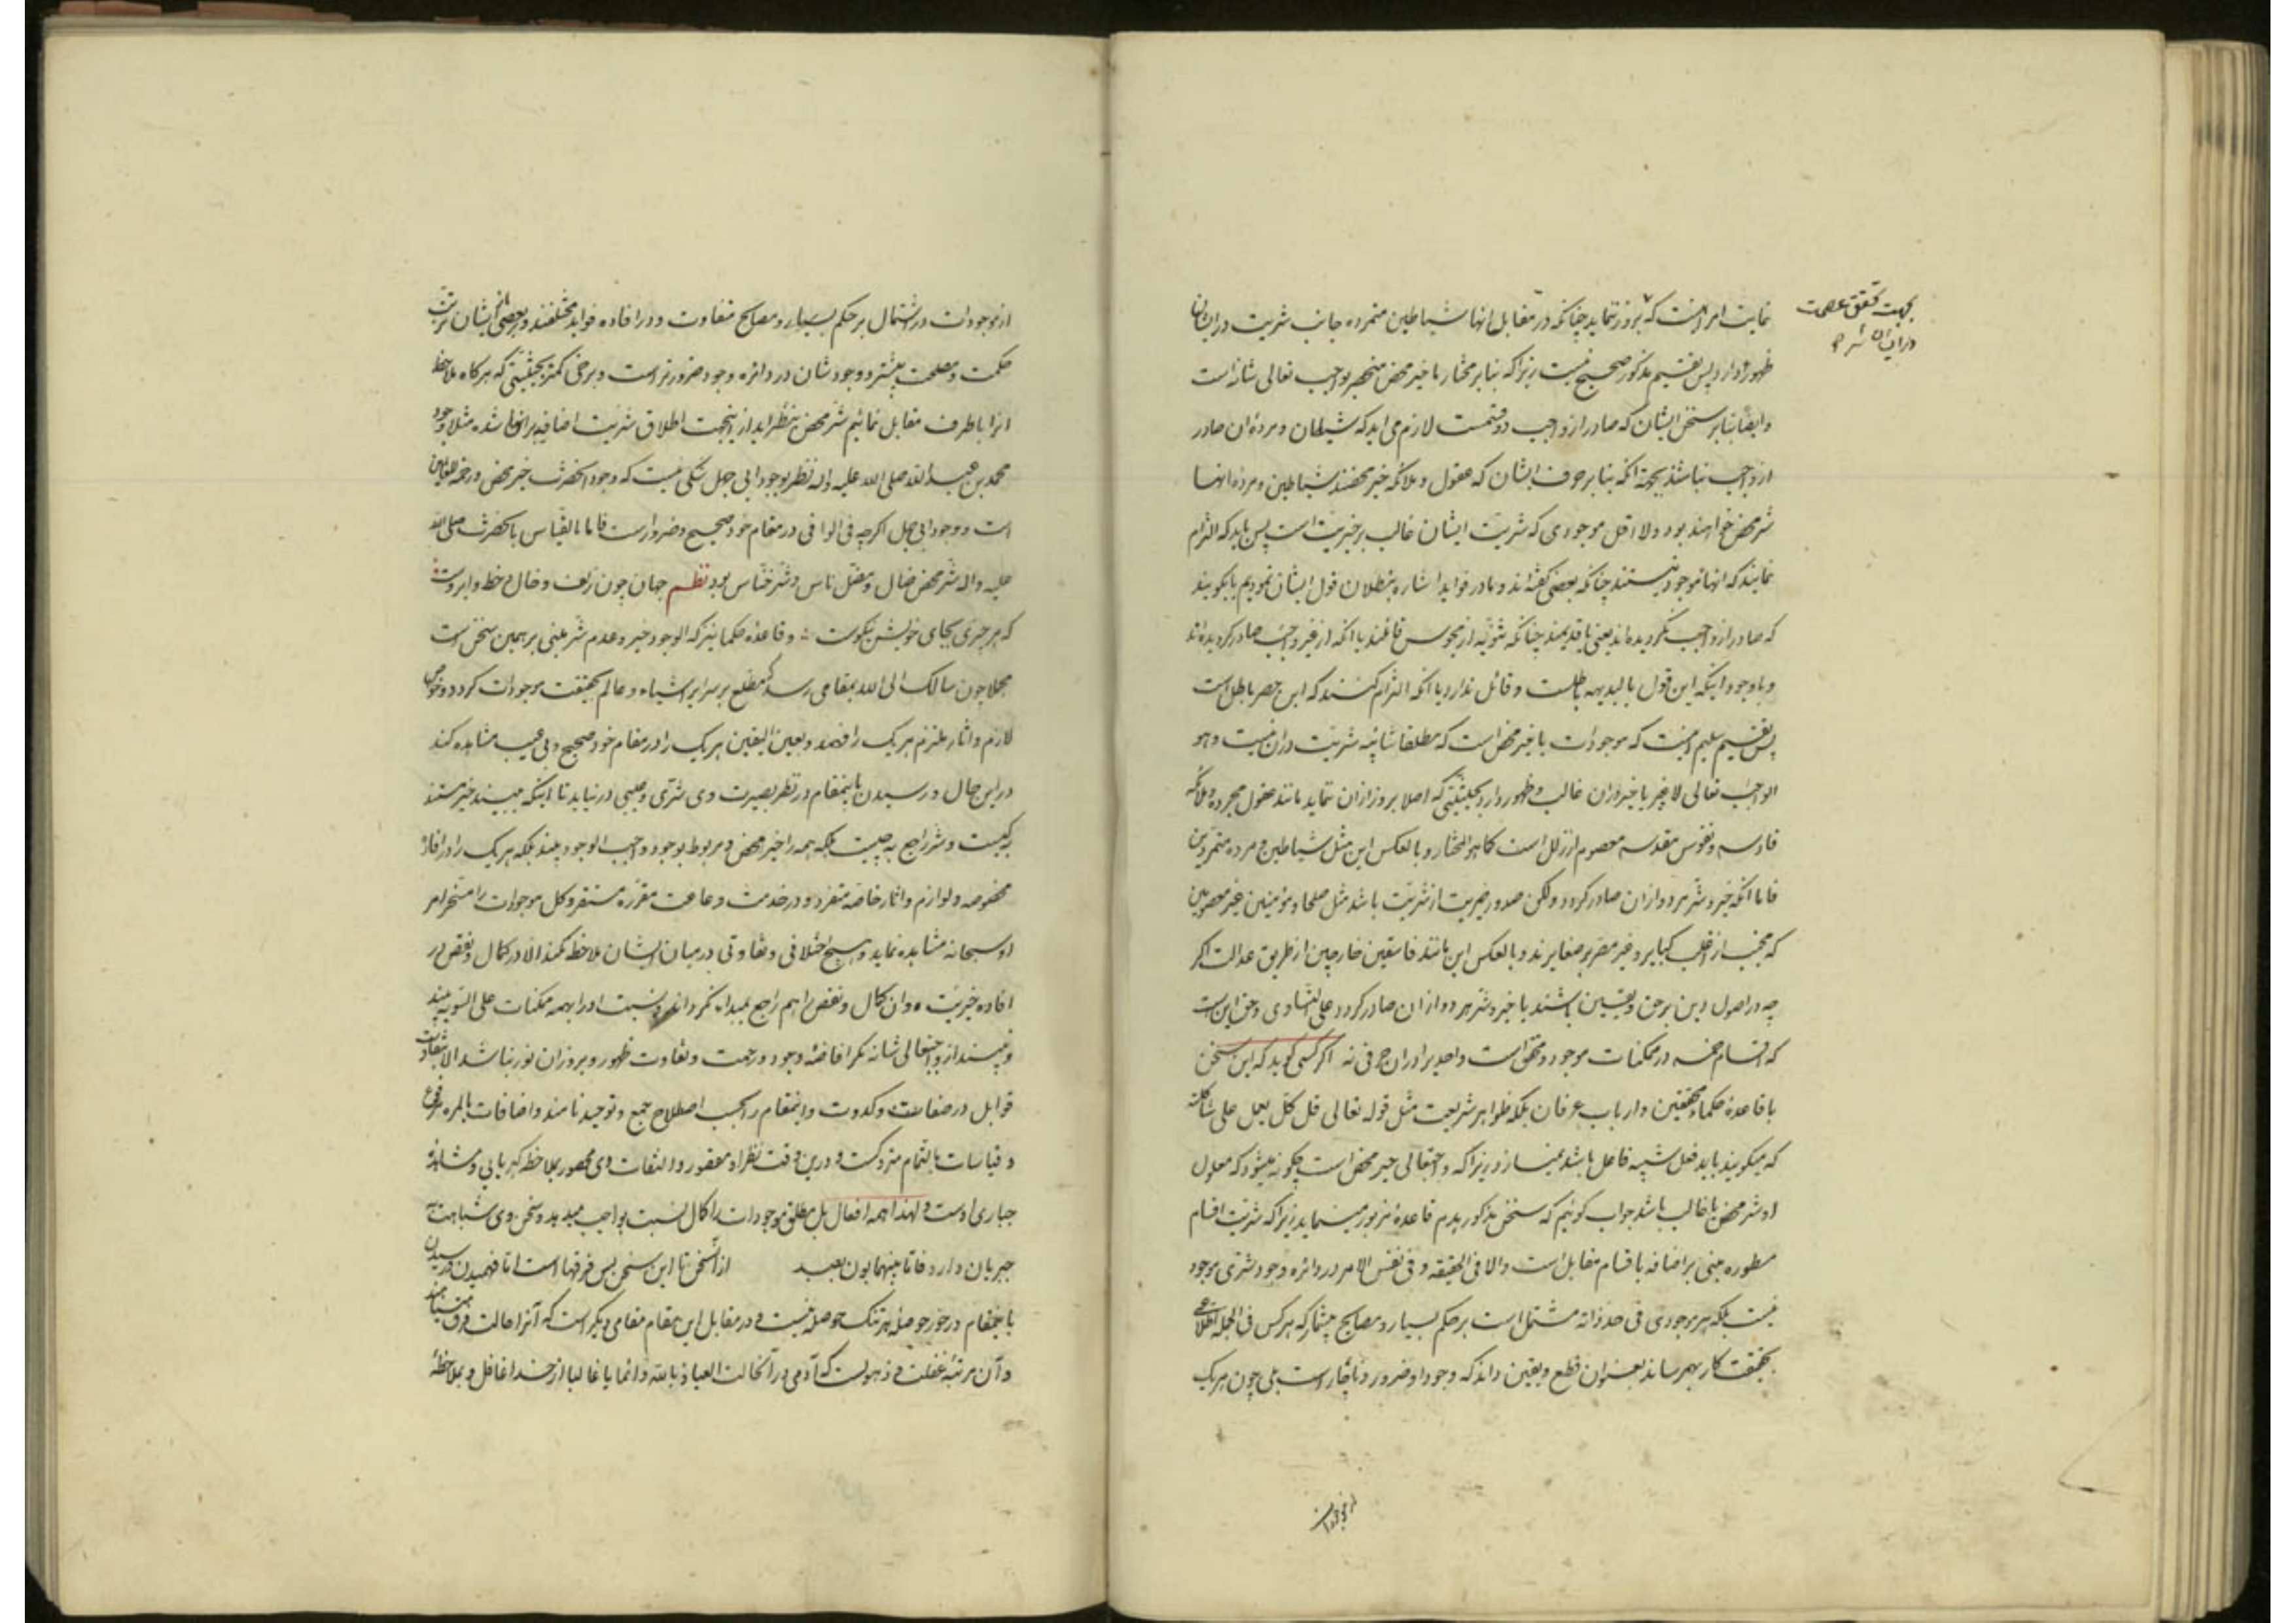 غایت امر انست که بروز ننماید چنانکه در مقابل انها شیاطین متمرده جانب شریت در ایشان
بجهت تحقق عصمت
در ایشان
ظهور دارد پس تقسیم مذکور صحیح نیست زیرا که بنا بر مختار ما خیر محض منحصر بواجب تعالی شانه است
و ایضا بنا بر سخن ایشان که صادر از واجب دو قسمت لازم می اید که شیطان و مرده ان صادر
از واجب نباشند بجهة انکه بنا بر حرف ایشان که عقول و ملائکه خیر محضند شیاطین و مرده انها
شر محض خواهند بود و لا اقل موجودی که شریت ایشان غالب بر خیریت است پس باید که التزام
نمایند که انها موجود نیستند چنانکه بعضی گفته اند و ما در فواید اشاره ببطلان قول ایشان نمودیم یا بگویند
که صادر از واجب نگردیده اند یعنی یا قدیمند چنانکه ثنویه از مجوس قائلند یا انکه از غیر واجب صادر گردیده اند
و با وجود اینکه این قول بالبدیهه باطلست و قائل ندارد یا انکه التزام کنند که این حصر باطل است
پس تقسیم سلیم اینست که موجودات یا خیر محض است که مطلقا شائبه شریت دران نیست و هو
الواجب تعالی لا غیر یا خیر دران غالب و ظهور دارد بحیثیتی که اصلا بروز ازان ننماید مانند عقول مجرده و ملائکه
قادسه و نفوس مقدسه معصوم از زلل است کما هو المختار و بالعکس این مثل شیاطین و مرده متمردین
فاما انکه خیر و شر هر دو ازان صادر گردد و لکن صدور خیریت از شریت باشد مثل صلحا و مؤمنین غیر معصومین
که مجتنب از اغلب کبایر و غیر مصر بر صغایرند و بالعکس این مانند فاسقین خارجین از طریق عدالت اگر
چه در اصول دین بر حق و یقین باشند یا خیر و شر هر دو ازان صادر گردد علی التساوی و حق این است
که اقسام خمسه در ممکنات موجود و متحقق است و احدیرا دران حرفی نه اگر کسی گوید که این سخن
با قاعده حکماء محققین و ارباب عرفان بلکه ظواهر شریعت مثل قوله تعالی قل کل یعمل علی شاکلته
که میگویند باید فعل شبیه فاعل باشد نمیسازد زیرا که واجبتعالی خیر محض است چگونه میشود که معلول
او شر محض یا غالب باشد جواب گوئیم که سخن مذکور هدم قاعده مزبور نمینماید زیرا که شریت اقسام
مسطوره مبنی بر اضافه باقسام مقابل است و الا فی الحقیقه و فی نفس الامر در دائره وجود شری موجود
نیست بلکه هر موجودی فی حد ذاته مشتمل است بر حکم بسیار و مصالح بیشمار که هر کس فی الجمله اطلاعی
بحقیقت کار بهم رساند بعنوان قطع و یقین داند که وجود او ضرور و ناچار است بلی چون هر یک
از موجودات
از موجودات در اشتمال بر حکم بسیار و مصالح متفاوت و در افاده فواید مختلفند و بعضی از ایشان ترتب
حکمت و مصلحت بیشتر و وجودشان در دائره وجود ضرورتر است و برخی کمتر بحیثیتی که هر گاه ملاحظه
انرا با طرف مقابل نمائیم شر محض بنظر اید ازینجهت اطلاق شریت اضافیه بر انها شده مثلا وجود
محمد بن عبد الله صلی الله علیه و اله نظر بوجود ابی جهل شکی نیست که وجود انحضرت خیر محض و رحمة للعالمین
است و وجود ابی جهل اگرچه فی الواقع در مقام خود صحیح و ضرور است فاما بالقیاس بانحضرت صلی الله
علیه و اله شر محض ضال و مضل ناس و شر خناس بود نظم جهان چون زلف و خال و خط و ابروست
که هر چیزی بجای خویش نیکوست و قاعده حکما نیز که الوجود خیر و عدم شر مبنی بر همین سخن است
مجملا چون سالک الی الله بمقامی رسد که مطلع بر سرایر اشیاء و عالم بحقیقت موجودات گردد و خواص
لازم و اثار ملتزم هر یک را فهمد و بعین الیقین هر یک را در مقام خود صحیح و بی عیب مشاهده کند
در این حال و رسیدن باینمقام در نظر بصیرت وی شری و عیبی در نیاید تا اینکه ببیند خیر مستند
به کیست و شر راجع به چیست بلکه همه را خیر محض و مربوط بوجود واجب الوجود بیند بلکه هر یک را در افاده
مخصوصه و لوازم و اثار خاصه متفرد و در خدمت و طاعت مقرره مستقر و کل موجودات را مسخر امر
او سبحانه مشاهده نماید و هیچ اختلافی و تفاوتی در میان ایشان ملاحظه نکند الا در کمال و نقص در
افاده خیریت و ان کمال و نقص را هم راجع بمبداء نگرداند و نسبت او را بهمه ممکنات علی السویه بیند
و نبیند از واجبتعالی شانه مگر افاضه وجود و رحمت و تفاوت ظهور و بروز ان نور نباشد الا بتفاوت
قوابل در صفا و کدورت و اینمقام را بحسب اصطلاح جمع و توحید نامند و اضافات بالمره مرفوع
و قیاسات بالتمام متروکست و درین وقت نظر او مقصور و التفات وی محصور بملاحظه کبریایی و مشاهده
جباری اوست و لهذا همه افعال بل مطلق موجودات را کمال نسبت بواجب میدهد و سخن وی شباهت
جبریان دارد فاما بینهما بون بعید از آن سخن تا این سخن بس فرقها است اما فهمیدن و رسیدن
باینمقام در خور حوصله هر تنک حوصله نیست و در مقابل این مقام مقامی دیگر است که آنرا حالت فرق مینامند
و آن مرتبه غفلت و ذهولست که آدمی در آنحالت العیاذ بالله دائما یا غالبا از خدا غافل و بملاحظه